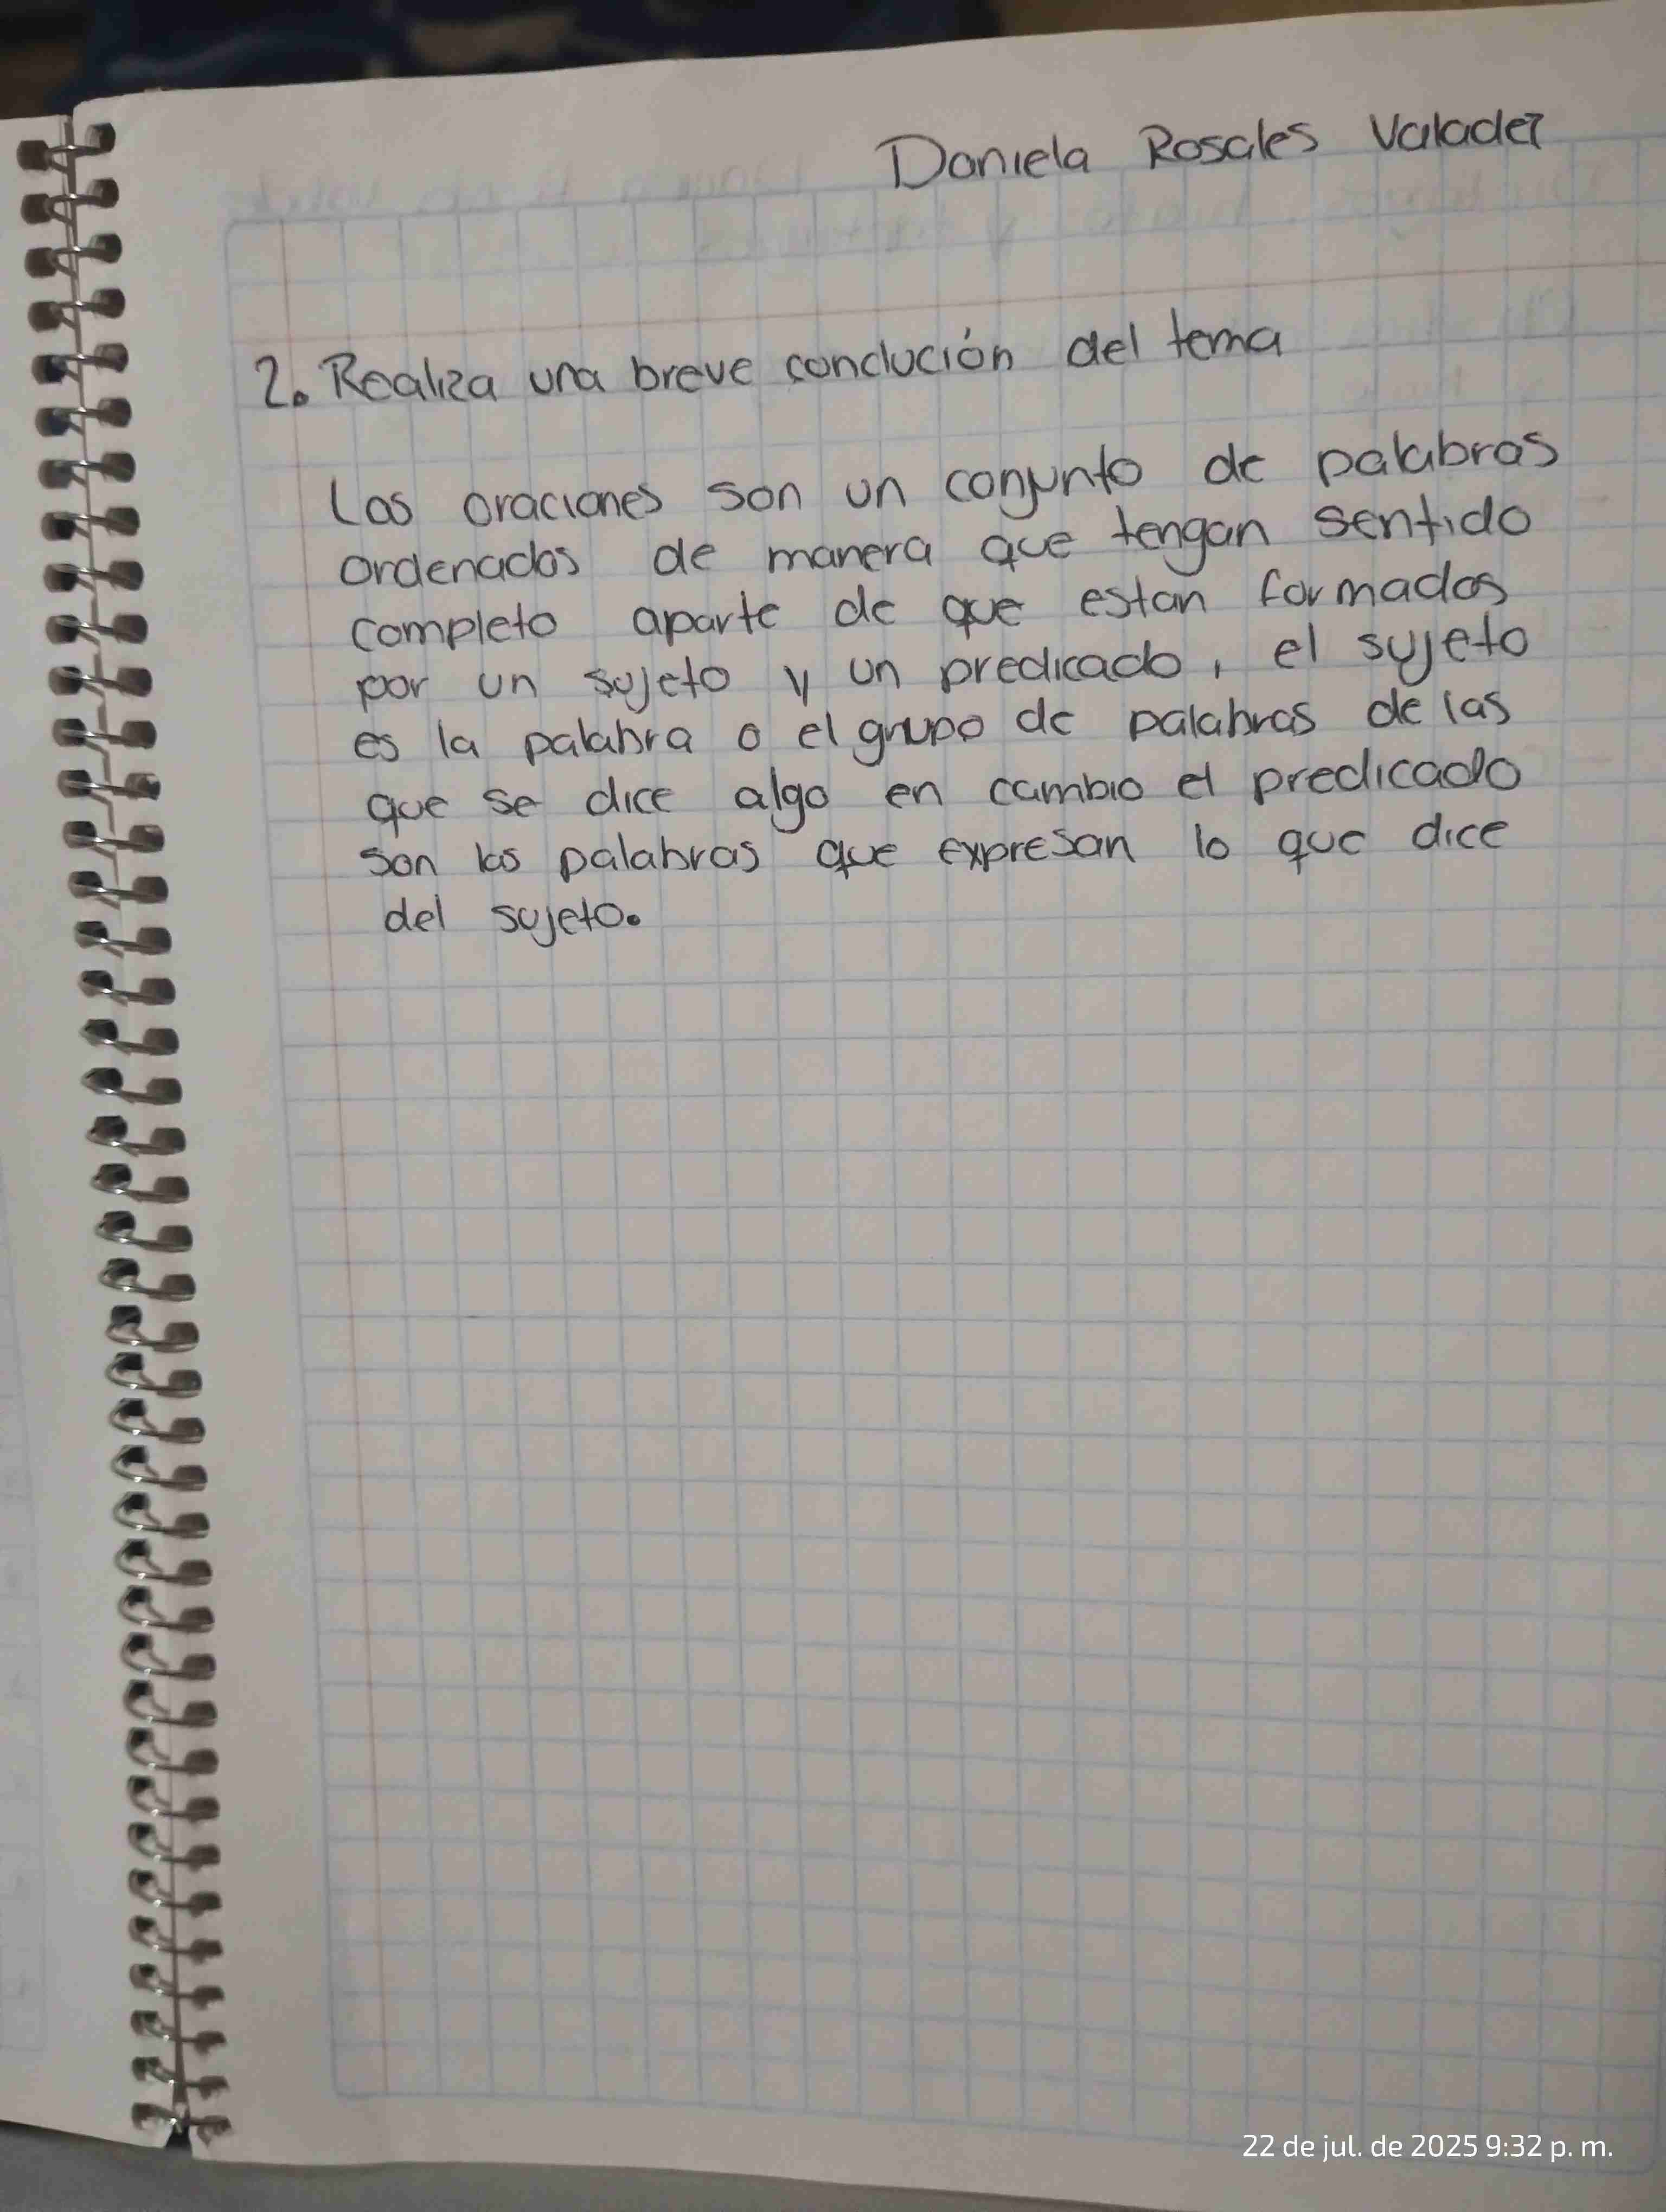 Daniela Rosales Valadez
2. Realiza una breve conclución del tema
Las oraciones son un conjunto de palabras
ordenados de manera que tengan sentido
completo aparte de que estan formados
por un sujeto y un predicado, el sujeto
es la palabra o el grupo de palabras de las
que se dice algo en cambio el predicado
son las palabras que expresan lo que dice
del sujeto.
22 de jul. de 2025 9:32 p. m.